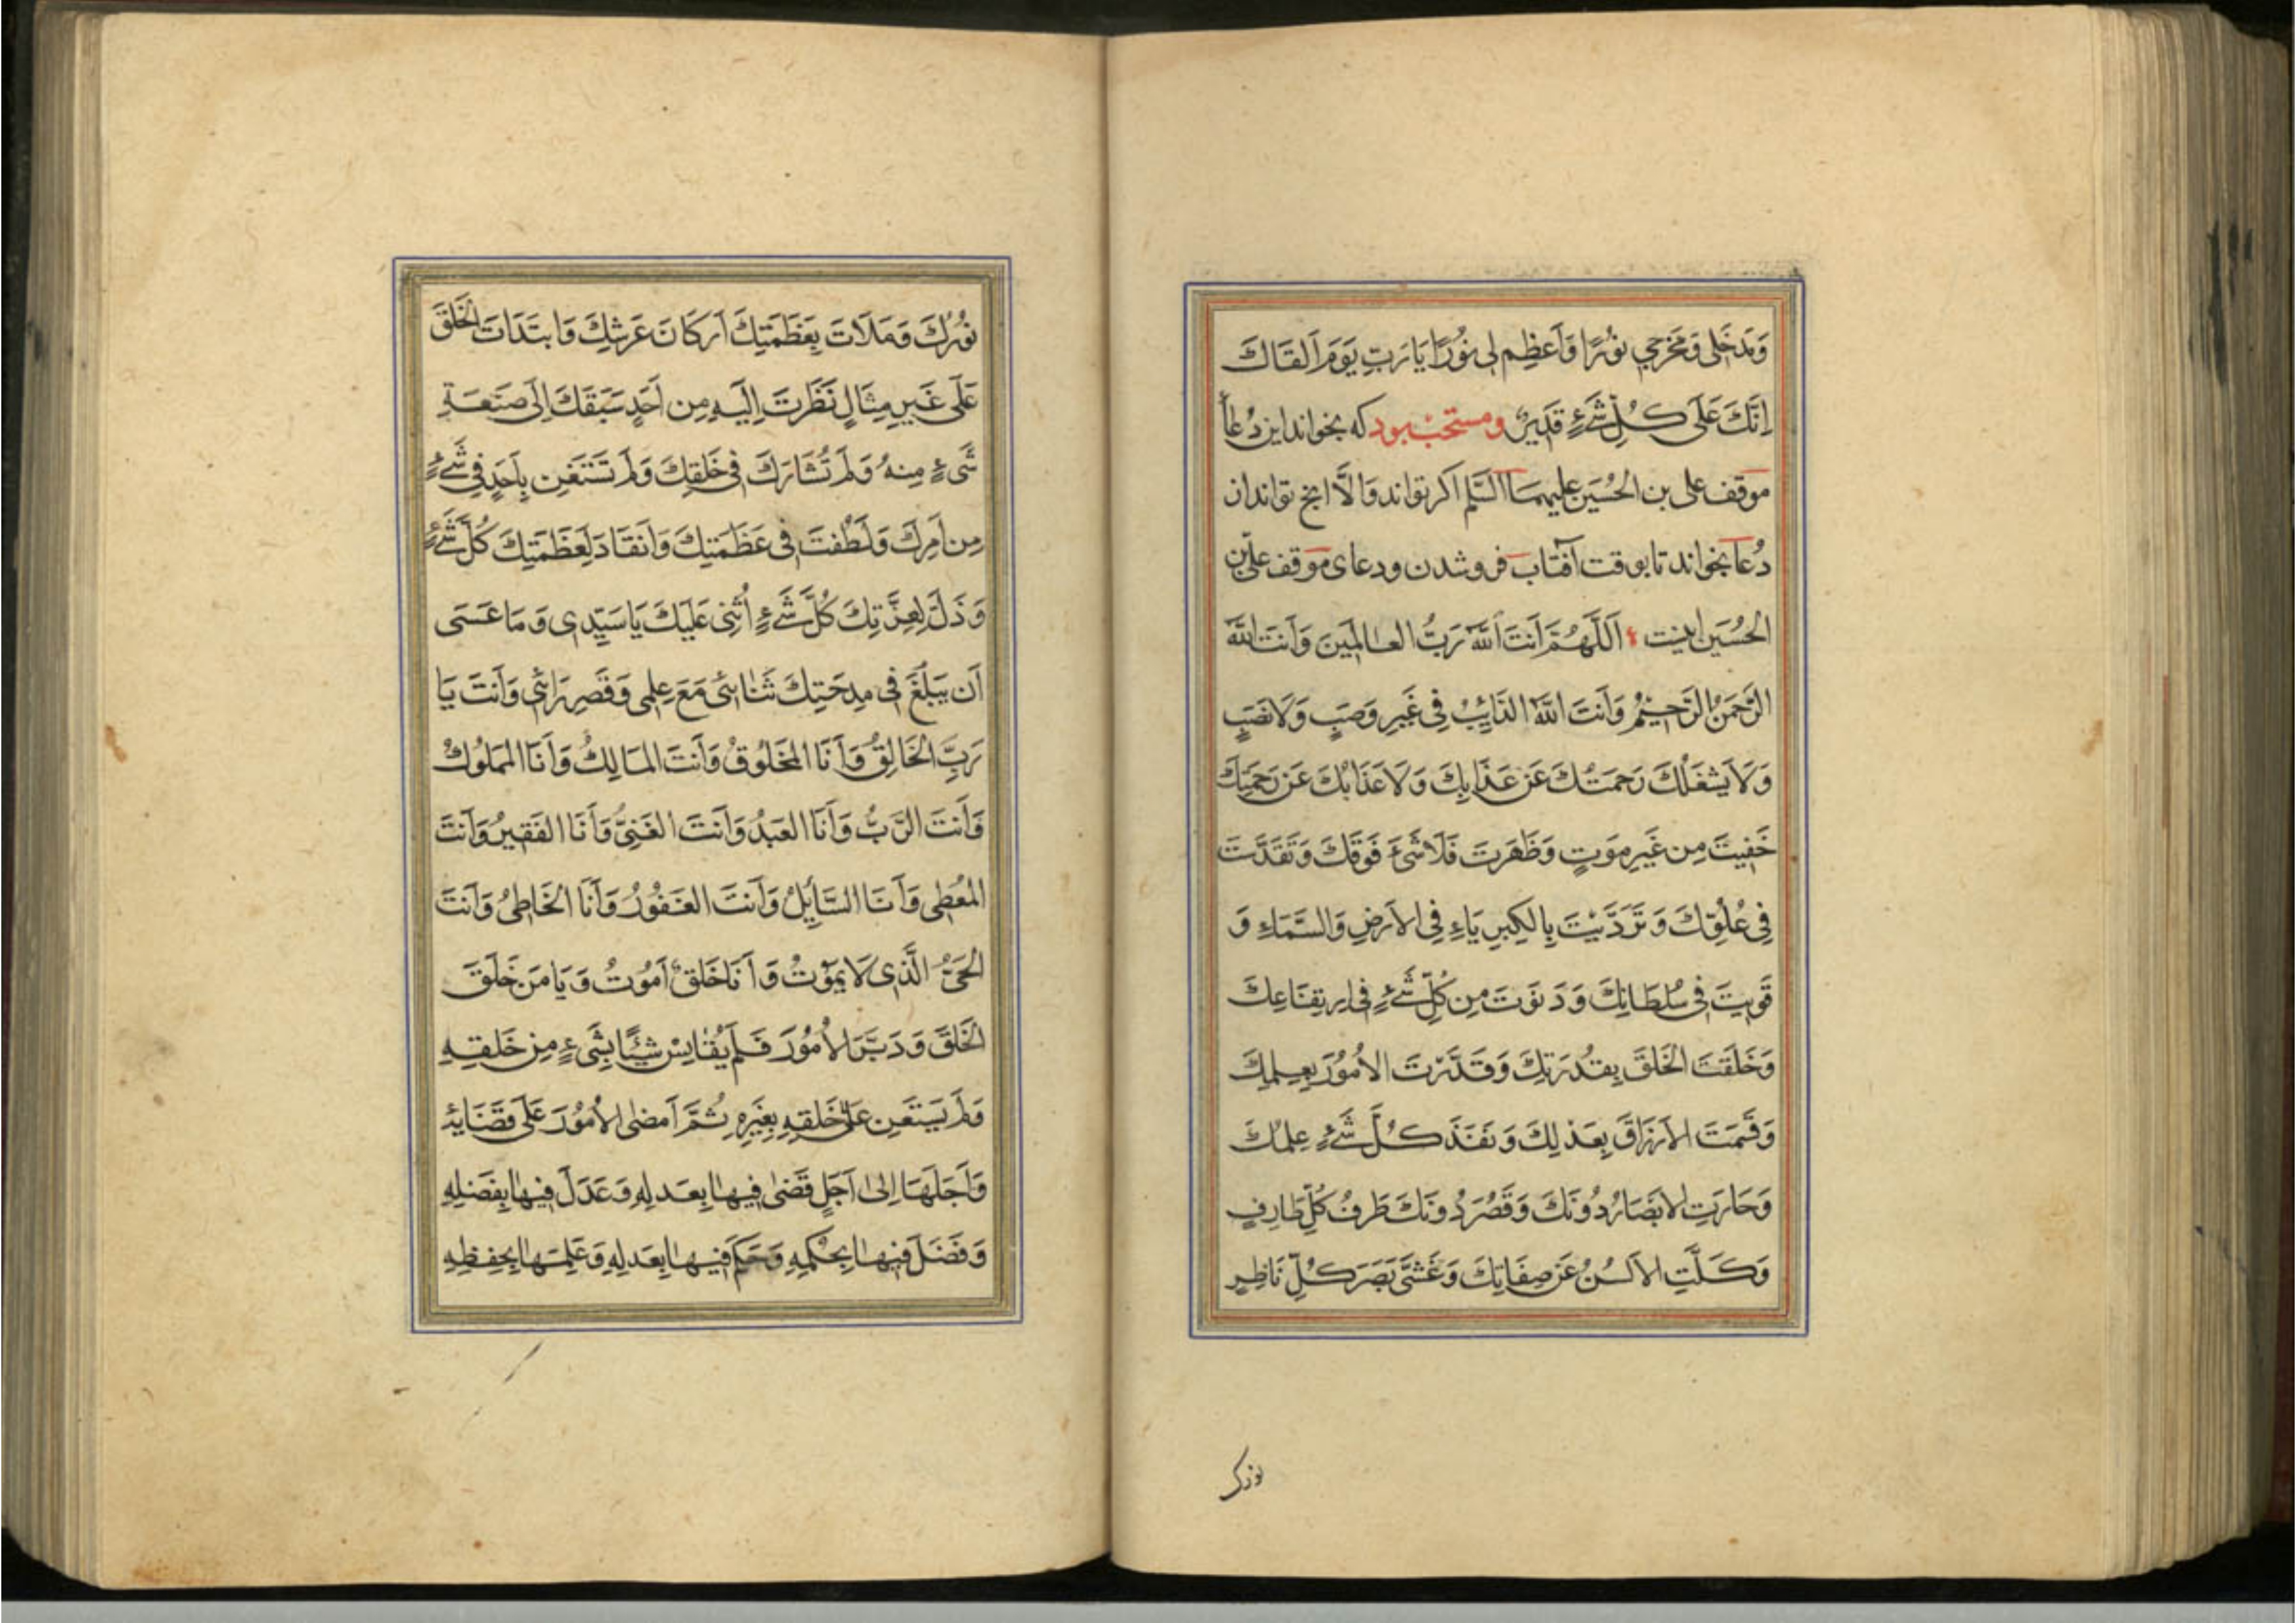 وَمَدخَلی وَمَخرَجی نوُرًا وَاَعظِم لی نوُرًا یَارَبِّ یَومَ اَلقَاكَ
اِنَّكَ عَلَی کُلِّ شَیءٍ قَدیرٌ ومستحب بود که بخواند این دُعا
موقف علی بن الحُسَین علیهما السَّلم اکر تواند وَالَّا انچ تواند ازان
دُعا بخواند تا بوقت آفتاب فروشدن ودعای مَوقف علیّ بن
الحُسَین اینست اَللَّهُمَّ اَنتَ اَللّه رَبُّ العالَمینَ وَاَنتَ اللّه
الرَّحمَنُ الرَّحیمُ وَاَنتَ اللّهُ الدَّایِبُ فِی غَیرِ وَصَبٍ وَلَا نَصَبٍ
وَلَا یَشغَلُكَ رَحمَتُكَ عَن عَذَابِكَ وَلَا عَذَابُكَ عَن رَحمَتِكَ
خَفِیتَ مِن غَیرِ مَوتٍ وَظَهَرتَ فَلَا شَیءَ فَوقَكَ وَتَقَدَّستَ
فِی عُلُوِّكَ وَتَرَدَّیتَ بِالکِبرِیَاءِ فِی الاَرضِ وَالسَّمَاءِ وَ
قَوِیتَ فی سُلطَانِكَ وَدَنَوتَ مِن کُلِّ شَیءٍ فی اِرتِفَاعِكَ
وَخَلَقتَ الخَلقَ بِقُدرَتِكَ وَقَدَّرتَ الاُمُورَ بِعِلمِكَ
وَقَسَمتَ الاَرزَاقَ بِعَدلِكَ وَنَفَذَ کُلَّ شَیءٍ عِلمُكَ
وَحَارَتِ الاَبصَارُ دُونَكَ وَقَصُرَ دُونَكَ طَرفُ کُلِّ طَارِفٍ
وَکَلَّتِ الاَلسُنُ عَن صِفَاتِكَ وَغَشَّی بَصَرَ کُلِّ نَاظِرٍ
نورک
نُورُكَ وَمَلَاتَ بِعَظَمَتِكَ اَرکَانَ عَرشِكَ وَابتَدَاتَ الخَلقَ
عَلَی غَیرِ مِثَالٍ نَظَرتَ اِلَیهِ مِن اَحَدٍ سَبَقَكَ اِلَی صَنعَةِ
شَیءٍ مِنهُ وَلَم تُشَارَك فی خَلقِكَ وَلَم تَستَعِن بِاَحَدٍ فی شَیءٍ
مِن اَمرِكَ وَلَطُفتَ فی عَظَمَتِكَ وَانقَادَ لِعَظَمَتِكَ کُلُّ شَیءٍ
وَذَلَّ لِعِزَّتِكَ کُلُّ شَیءٍ اُثنِی عَلَیكَ یَا سَیِّدِی وَمَا عَسَی
اَن یَبلُغَ فی مِدحَتِكَ ثَنَائی مَعَ عِلمی وَقَصرِ رَائی وَاَنتَ یَا
رَبِّ الخَالِقُ وَاَنَا المَخلُوقُ وَاَنتَ المَالِكُ وَاَنَا المَملُوكُ
وَاَنتَ الرَّبُّ وَاَنَا العَبدُ وَاَنتَ الغَنِیُّ وَاَنَا الفَقیرُ وَاَنتَ
المُعطِی وَاَنَا السَّایِلُ وَاَنتَ الغَفُورُ وَاَنَا الخَاطِئُ وَاَنتَ
الحَیُّ الَّذی لَا یَمُوتُ وَاَنَا خَلقٌ اَمُوتُ وَیَا مَن خَلَقَ
الخَلقَ وَدَبَّرَ الاُمُورَ فَلَم یُقَایِس شَیئًا بِشَیءٍ مِن خَلقِهِ
وَلَم یَستَعِن عَلَی خَلقِهِ بِغَیرِهِ ثُمَّ اَمضَی الاُمُورَ عَلَی قَضَایِهِ
وَاَجَّلَهَا اِلَی اَجَلٍ قَضَی فِیهَا بِعَدلِهِ وَعَدَلَ فِیهَا بِفَضلِهِ
وَفَضَلَ فِیهَا بِحُکمِهِ وَحَکَمَ فِیهَا بِعَدلِهِ وَعَلِمَهَا بِحِفظِهِ